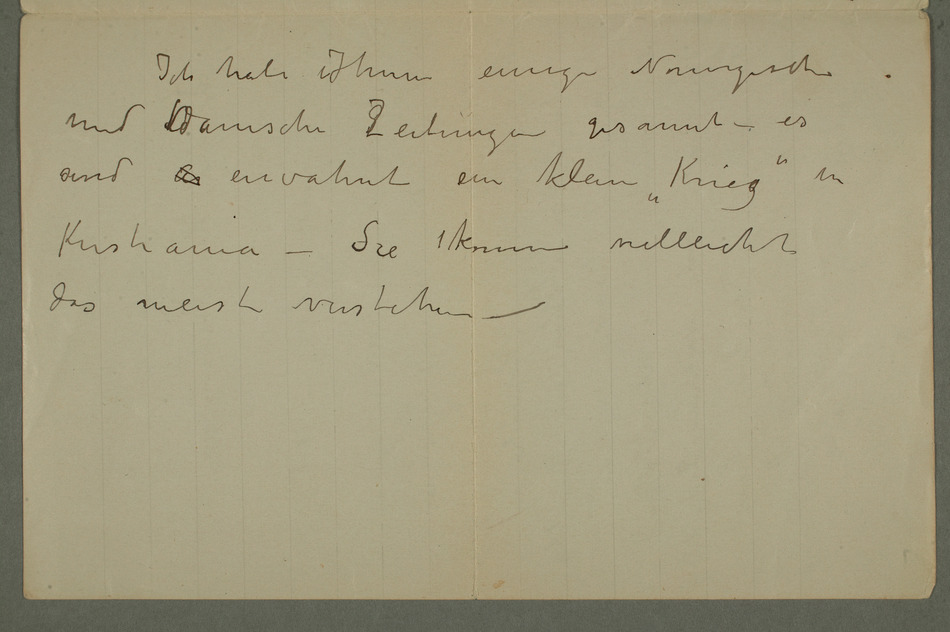 Ich habe Ihnen einige Norwegische
und Danische Zeitungen gesannt – es
sind erwahnt ein klein „Krieg“ in
Kristiania – Sie könen vielleicht
das meiste verstehen –